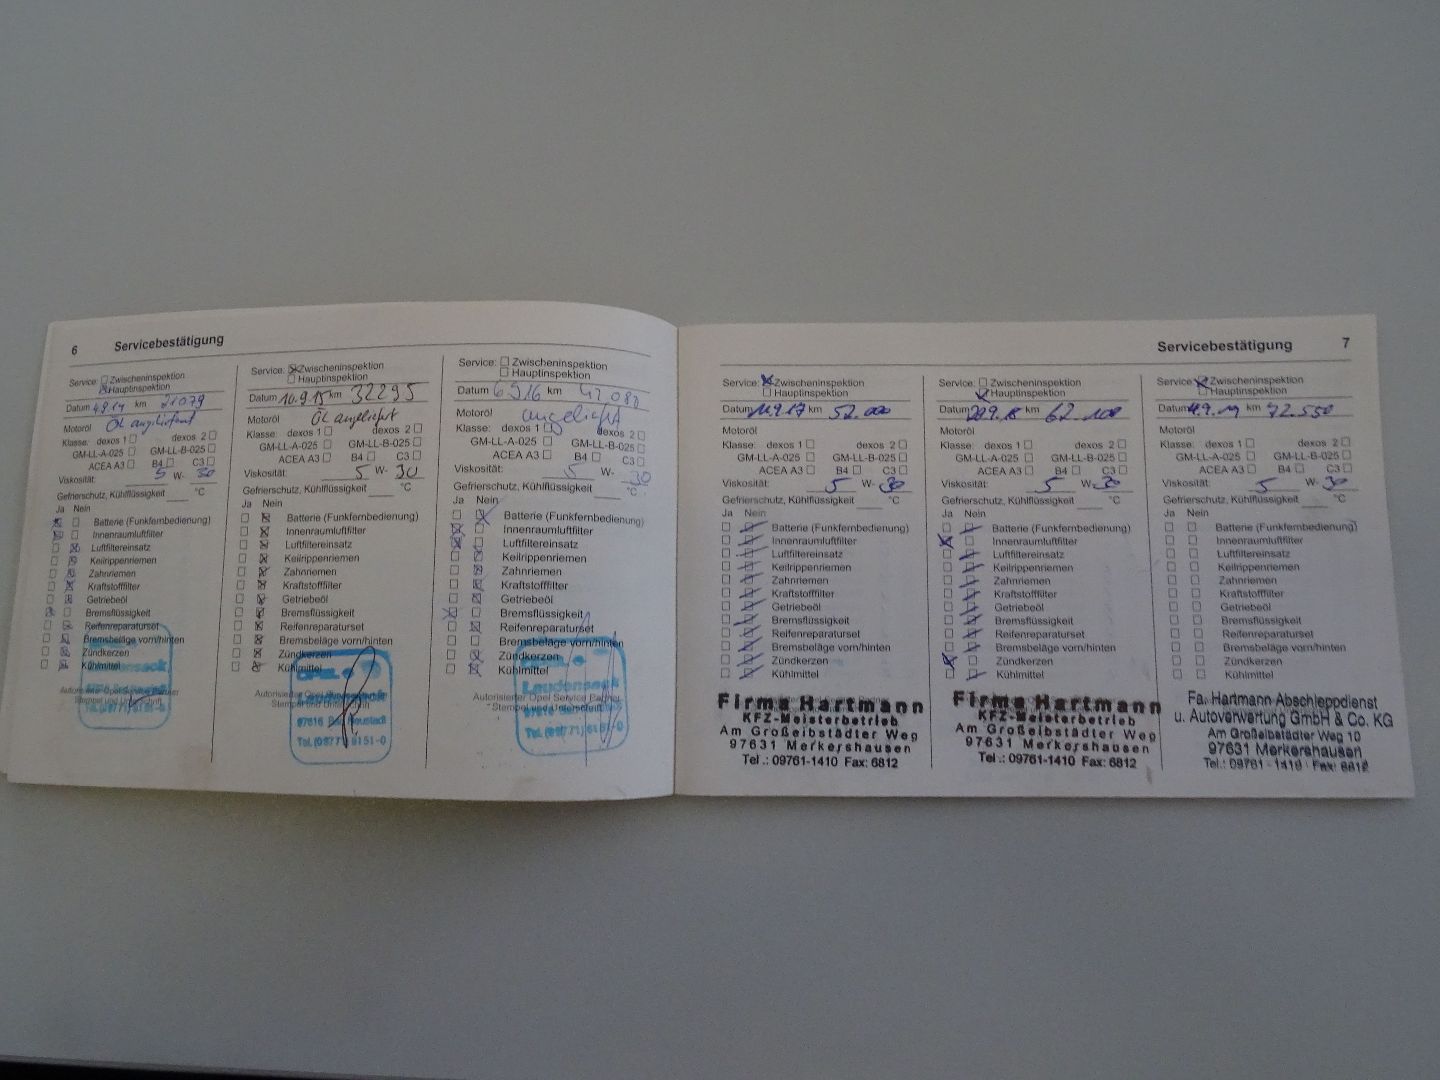 6 Servicebestätigung
Service: Zwischeninspektion
Hauptinspektion
Datum 4.8.14 km 21079
Motoröl Öl angeliefert
Klasse: dexos 1 dexos 2
GM-LL-A-025 GM-LL-B-025
ACEA A3 B4 C3
Viskosität: 5 W- 30
Gefrierschutz, Kühlflüssigkeit °C
Ja Nein
Batterie (Funkfernbedienung)
Innenraumluftfilter
Luftfiltereinsatz
Keilrippenriemen
Zahnriemen
Kraftstofffilter
Getriebeöl
Bremsflüssigkeit
Reifenreparaturset
Bremsbeläge vorn/hinten
Zündkerzen
Kühlmittel
Autorisierter Opel Service Partner
Stempel und Unterschrift
Service: Zwischeninspektion
Hauptinspektion
Datum 10.9.15 km 32295
Motoröl Öl angeliefert
Klasse: dexos 1 dexos 2
GM-LL-A-025 GM-LL-B-025
ACEA A3 B4 C3
Viskosität: 5 W- 30
Gefrierschutz, Kühlflüssigkeit °C
Ja Nein
Batterie (Funkfernbedienung)
Innenraumluftfilter
Luftfiltereinsatz
Keilrippenriemen
Zahnriemen
Kraftstofffilter
Getriebeöl
Bremsflüssigkeit
Reifenreparaturset
Bremsbeläge vorn/hinten
Zündkerzen
Kühlmittel
OPEL
Autorisierter Opel Service Partner
Stempel und Unterschrift
97616 Bad Neustadt
Tel. (09771) 6151-0
Service: Zwischeninspektion
Hauptinspektion
Datum 6.9.16 km 42.088
Motoröl angeliefert
Klasse: dexos 1 dexos 2
GM-LL-A-025 GM-LL-B-025
ACEA A3 B4 C3
Viskosität: 5 W- 30
Gefrierschutz, Kühlflüssigkeit °C
Ja Nein
Batterie (Funkfernbedienung)
Innenraumluftfilter
Luftfiltereinsatz
Keilrippenriemen
Zahnriemen
Kraftstofffilter
Getriebeöl
Bremsflüssigkeit
Reifenreparaturset
Bremsbeläge vorn/hinten
Zündkerzen
Kühlmittel
Autorisierter Opel Service Partner
Stempel und Unterschrift
Servicebestätigung 7
Service: Zwischeninspektion
Hauptinspektion
Datum 11.9.17 km 52.000
Motoröl
Klasse: dexos 1 dexos 2
GM-LL-A-025 GM-LL-B-025
ACEA A3 B4 C3
Viskosität: 5 W- 30
Gefrierschutz, Kühlflüssigkeit °C
Ja Nein
Batterie (Funkfernbedienung)
Innenraumluftfilter
Luftfiltereinsatz
Keilrippenriemen
Zahnriemen
Kraftstofffilter
Getriebeöl
Bremsflüssigkeit
Reifenreparaturset
Bremsbeläge vorn/hinten
Zündkerzen
Kühlmittel
Firma Hartmann
KFZ-Meisterbetrieb
Am Großeibstädter Weg
97631 Merkershausen
Tel.: 09761-1410 Fax: 6812
Service: Zwischeninspektion
Hauptinspektion
Datum km 62.100
Motoröl
Klasse: dexos 1 dexos 2
GM-LL-A-025 GM-LL-B-025
ACEA A3 B4 C3
Viskosität: 5 W- 30
Gefrierschutz, Kühlflüssigkeit °C
Ja Nein
Batterie (Funkfernbedienung)
Innenraumluftfilter
Luftfiltereinsatz
Keilrippenriemen
Zahnriemen
Kraftstofffilter
Getriebeöl
Bremsflüssigkeit
Reifenreparaturset
Bremsbeläge vorn/hinten
Zündkerzen
Kühlmittel
Firma Hartmann
KFZ-Meisterbetrieb
Am Großeibstädter Weg
97631 Merkershausen
Tel.: 09761-1410 Fax: 6812
Service: Zwischeninspektion
Hauptinspektion
Datum 4.9.19 km 72.550
Motoröl
Klasse: dexos 1 dexos 2
GM-LL-A-025 GM-LL-B-025
ACEA A3 B4 C3
Viskosität: 5 W- 30
Gefrierschutz, Kühlflüssigkeit °C
Ja Nein
Batterie (Funkfernbedienung)
Innenraumluftfilter
Luftfiltereinsatz
Keilrippenriemen
Zahnriemen
Kraftstofffilter
Getriebeöl
Bremsflüssigkeit
Reifenreparaturset
Bremsbeläge vorn/hinten
Zündkerzen
Kühlmittel
Fa. Hartmann Abschleppdienst
u. Autoverwertung GmbH & Co. KG
Am Großeibstädter Weg 10
97631 Merkershausen
Tel.: 09761 - 1410 Fax: 6812